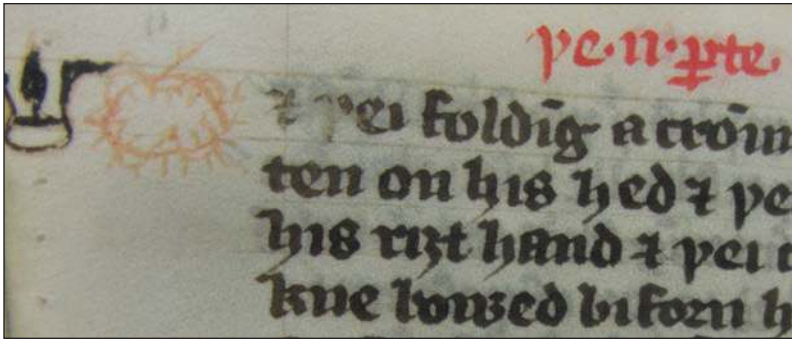 þe·ii·ꝑte·
⁊ þei foldīg a croū
ten on his hed ⁊ þe
his riȝt hand ⁊ þei
kne bowed biforn h